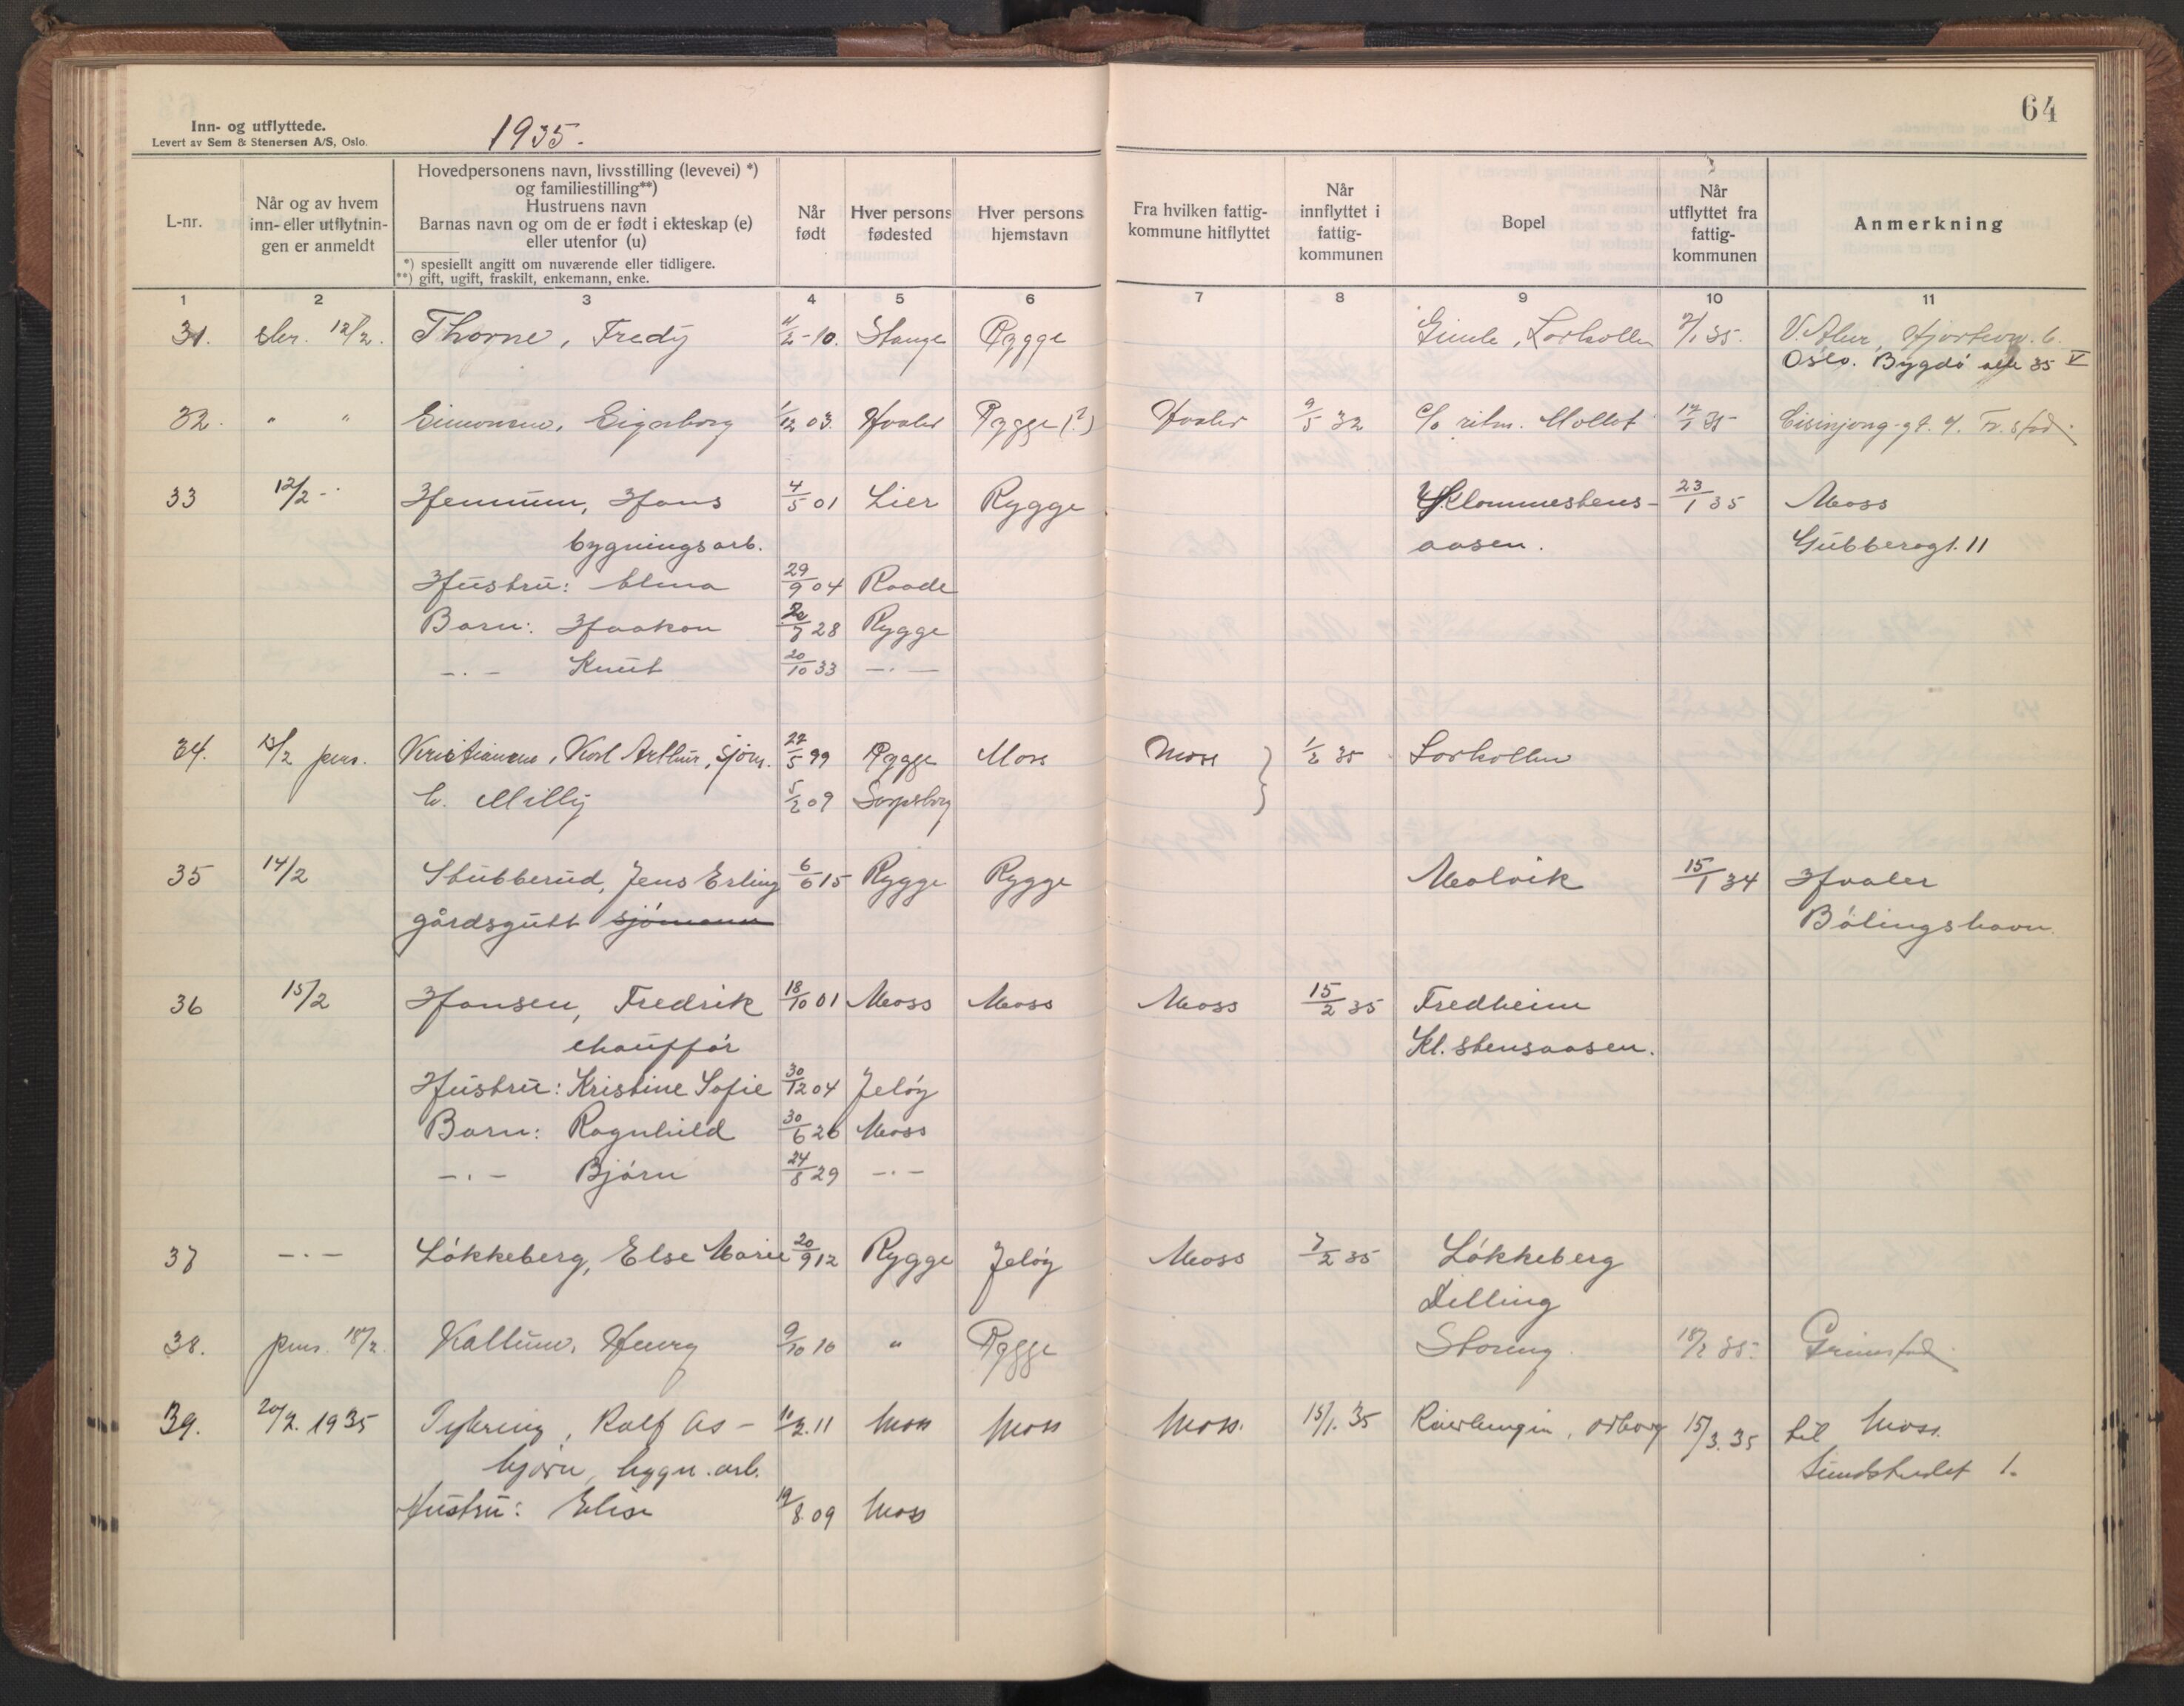 64
Inn- og utflyttede.
Levert av Sem & Stenersen A/S, Oslo.
1935.
L-nr.
Når og av hvem
inn- eller utflytnin-
gen er anmeldt
Hovedpersonens navn, livsstilling (levevei) *)
og familiestilling**)
Hustruens navn
Barnas navn og om de er født i ekteskap (e)
eller utenfor (u)
*) spesiellt angitt om nuværende eller tidligere.
**) gift, ugift, fraskilt, enkemann, enke.
Når
født
Hver persons
fødested
Hver persons
hjemstavn
Fra hvilken fattig-
kommune hitflyttet
Når
innflyttet i
fattig-
kommunen
Bopel
Når
utflyttet fra
fattig-
kommunen
Anmerkning
1 2 3 4 5 6 7 8 9 10 11
31. 12/2. Thorne, Fredy 2-10. Stange Rygge Gimle, Larkollen 35.
Oslo. Bygdö alle 35 V
32. " " 12 03. Hvaler Rygge (?) Hvaler 9/5 32 c/o
33 12/2 -·· Hemnum, Hans 4/5 01 Lier Rygge Klommestens- 23/1 35 Moss
bygningsarb. aasen. Gubberogt. 11
Hustru: Alma 29/9 04 Raade
Barn: Haakon 28 Rygge
-·- Knut 20/10 33 -·-
34. /2 pers. Kristiansen, Karl Arthur, sjøm. 5 99 Rygge Moss Moss } 1/2 35 Larkollen
h. Milly 5/2 09 Sarpsborg
35 14/2 Stubberud, Jens Erling 6/6 15 Rygge Rygge Malvik 15/1 34 Hvaler
gårdsgutt sjømann Bölingshavn.
36 15/2 Hansen, Fredrik 18/10 01 Moss Moss Moss 15/2 35 Fredheim
chauffør Kl. stensaasen.
Hustru: Kristine Sofie 30/12 04 Jeløy
Barn: Ragnhild 30/6 26 Moss
-·- Bjørn 24/8 29 -·-
37 -·- Løkkeberg, Else Marie 20/9 12 Rygge Jeløy Moss 7/2 35 Løkkeberg
Dilling
38. pers. 18/2. Kallum, Henry 9/10 10 " Rygge Støreng. 35. Grimstad
39. 20/2. 1935 Rolf As- 11/2. 11 Moss Moss Moss. 15/1. 35 15/3. 35 til Moss.
bjørn, bygn. arb. Sundstredet 1.
Hustru: Elise 19/8. 09 Moss